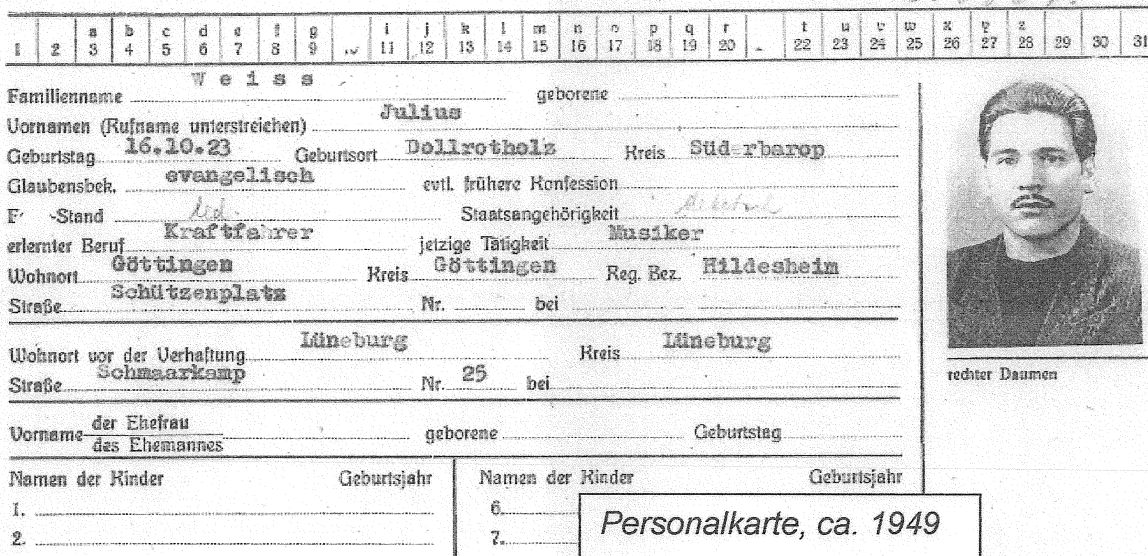 a b c d e f g i j k l m n o p q r t u v w x y z
1 2 3 4 5 6 7 8 9 11 12 13 14 15 16 17 18 19 20 22 23 24 25 26 27 28 29 30 31
Familienname Weiss geborene
Vornamen (Rufname unterstreichen) Julius
Geburtstag 16.10.23 Geburtsort Dollrotholz Kreis Süderbarop
Glaubensbek. evangelisch evtl. frühere Konfession
F -Stand led. Staatsangehörigkeit
erlernter Beruf Kraftfahrer jetzige Tätigkeit Musiker
Wohnort Göttingen Kreis Göttingen Reg. Bez. Hildesheim
Straße Schützenplatz Nr. bei
Wohnort vor der Verhaftung Lüneburg Kreis Lüneburg
Straße Schmaarkamp Nr. 25 bei
rechter Daumen
Vorname der Ehefrau geborene Geburtstag
des Ehemannes
Namen der Kinder Geburtsjahr Namen der Kinder Geburtsjahr
1. 6.
2. 7.
Personalkarte, ca. 1949